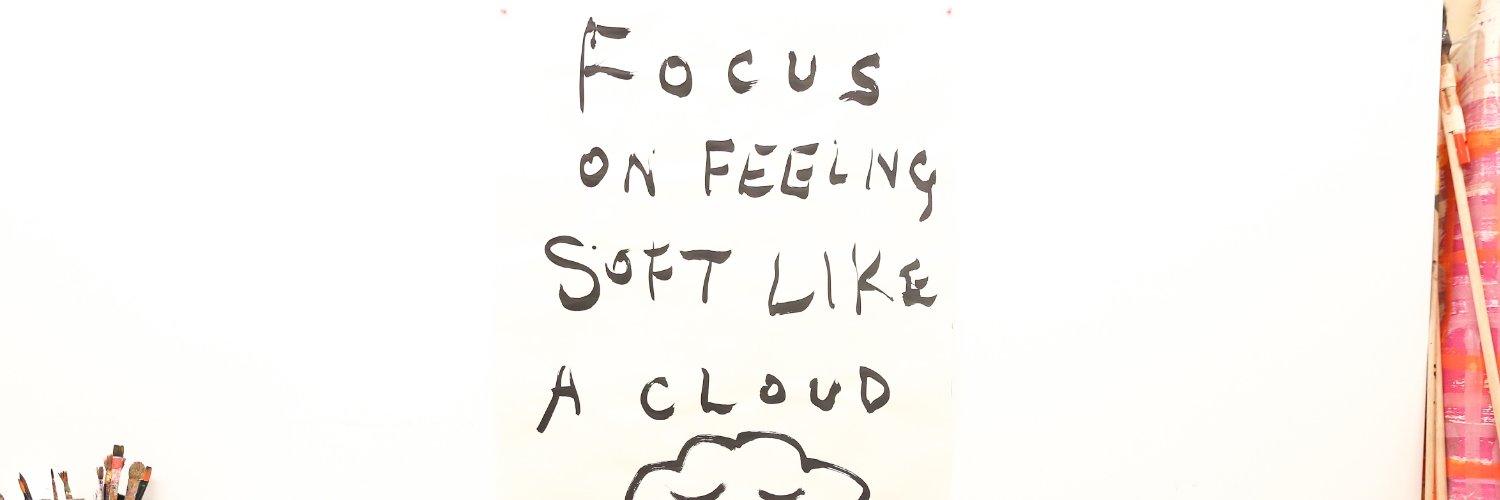 FOCUS
ON FEELING
SOFT LIKE
A CLOUD